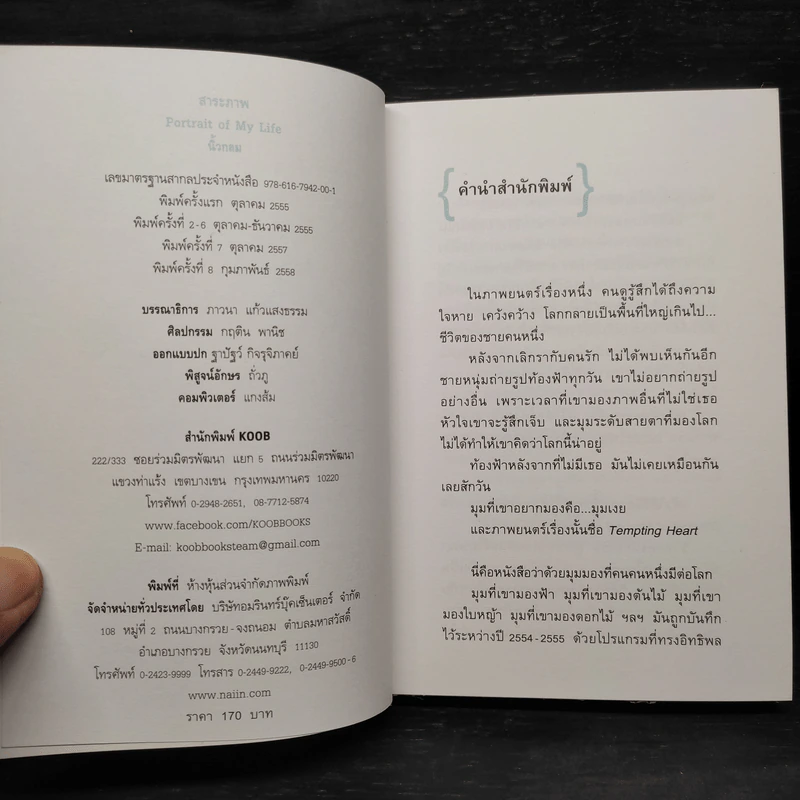 สาระภาพ
Portrait of My Life
นิ้วกลม
เลขมาตรฐานสากลประจำหนังสือ 978-616-7942-00-1
พิมพ์ครั้งแรก ตุลาคม 2555
พิมพ์ครั้งที่ 2-6 ตุลาคม-ธันวาคม 2555
พิมพ์ครั้งที่ 7 ตุลาคม 2557
พิมพ์ครั้งที่ 8 กุมภาพันธ์ 2558
บรรณาธิการ ภาวนา แก้วแสงธรรม
ศิลปกรรม กฤติน พานิช
ออกแบบปก ฐาปัฐว์ กิจรุจิภาคย์
พิสูจน์อักษร ถั่วภู
คอมพิวเตอร์ แกงส้ม
สำนักพิมพ์ KOOB
222/333 ซอยร่วมมิตรพัฒนา แยก 5 ถนนร่วมมิตรพัฒนา
แขวงท่าแร้ง เขตบางเขน กรุงเทพมหานคร 10220
โทรศัพท์ 0-2948-2651, 08-7712-5874
www.facebook.com/KOOBBOOKS
E-mail: koobbooksteam@gmail.com
พิมพ์ที่ ห้างหุ้นส่วนจำกัดภาพพิมพ์
จัดจำหน่ายทั่วประเทศโดย บริษัทอมรินทร์บุ๊คเซ็นเตอร์ จำกัด
108 หมู่ที่ 2 ถนนบางกรวย-จงถนอม ตำบลมหาสวัสดิ์
อำเภอบางกรวย จังหวัดนนทบุรี 11130
โทรศัพท์ 0-2423-9999 โทรสาร 0-2449-9222, 0-2449-9500-6
www.naiin.com
ราคา 170 บาท
{คำนำสำนักพิมพ์}
ในภาพยนตร์เรื่องหนึ่ง คนดูรู้สึกได้ถึงความ
ใจหาย เคว้งคว้าง โลกกลายเป็นพื้นที่ใหญ่เกินไป...
ชีวิตของชายคนหนึ่ง
หลังจากเลิกรากับคนรัก ไม่ได้พบเห็นกันอีก
ชายหนุ่มถ่ายรูปท้องฟ้าทุกวัน เขาไม่อยากถ่ายรูป
อย่างอื่น เพราะเวลาที่เขามองภาพอื่นที่ไม่ใช่เธอ
หัวใจเขาจะรู้สึกเจ็บ และมุมระดับสายตาที่มองโลก
ไม่ได้ทำให้เขาคิดว่าโลกนี้น่าอยู่
ท้องฟ้าหลังจากที่ไม่มีเธอ มันไม่เคยเหมือนกัน
เลยสักวัน
มุมที่เขาอยากมองคือ...มุมเงย
และภาพยนตร์เรื่องนั้นชื่อ Tempting Heart
นี่คือหนังสือว่าด้วยมุมมองที่คนคนหนึ่งมีต่อโลก
มุมที่เขามองฟ้า มุมที่เขามองต้นไม้ มุมที่เขา
มองใบหญ้า มุมที่เขามองดอกไม้ ฯลฯ มันถูกบันทึก
ไว้ระหว่างปี 2554-2555 ด้วยโปรแกรมที่ทรงอิทธิพล